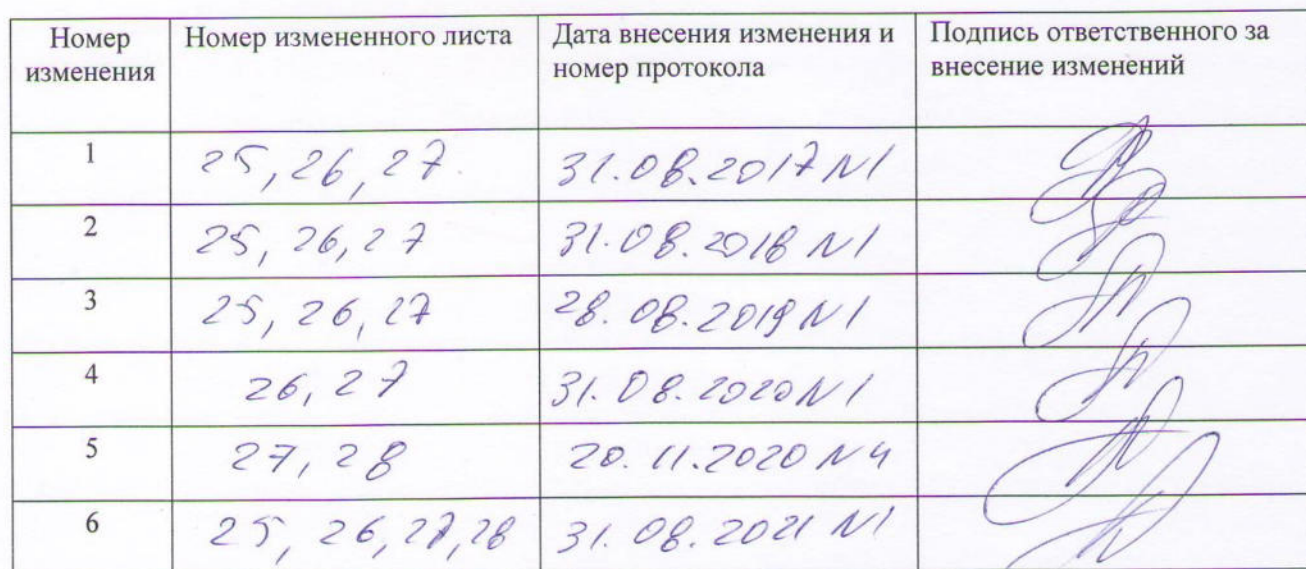 Номер изменения | Номер измененного листа | Дата внесения изменения и номер протокола | Подпись ответственного за внесение изменений
1 | 25, 26, 27. | 31.08.2017 N1
2 | 25, 26, 27 | 31.08.2018 N1
3 | 25, 26, 27 | 28.08.2019 N1
4 | 26, 27 | 31.08.2020 N1
5 | 27, 28 | 20.11.2020 N4
6 | 25, 26, 27, 28 | 31.08.2021 N1